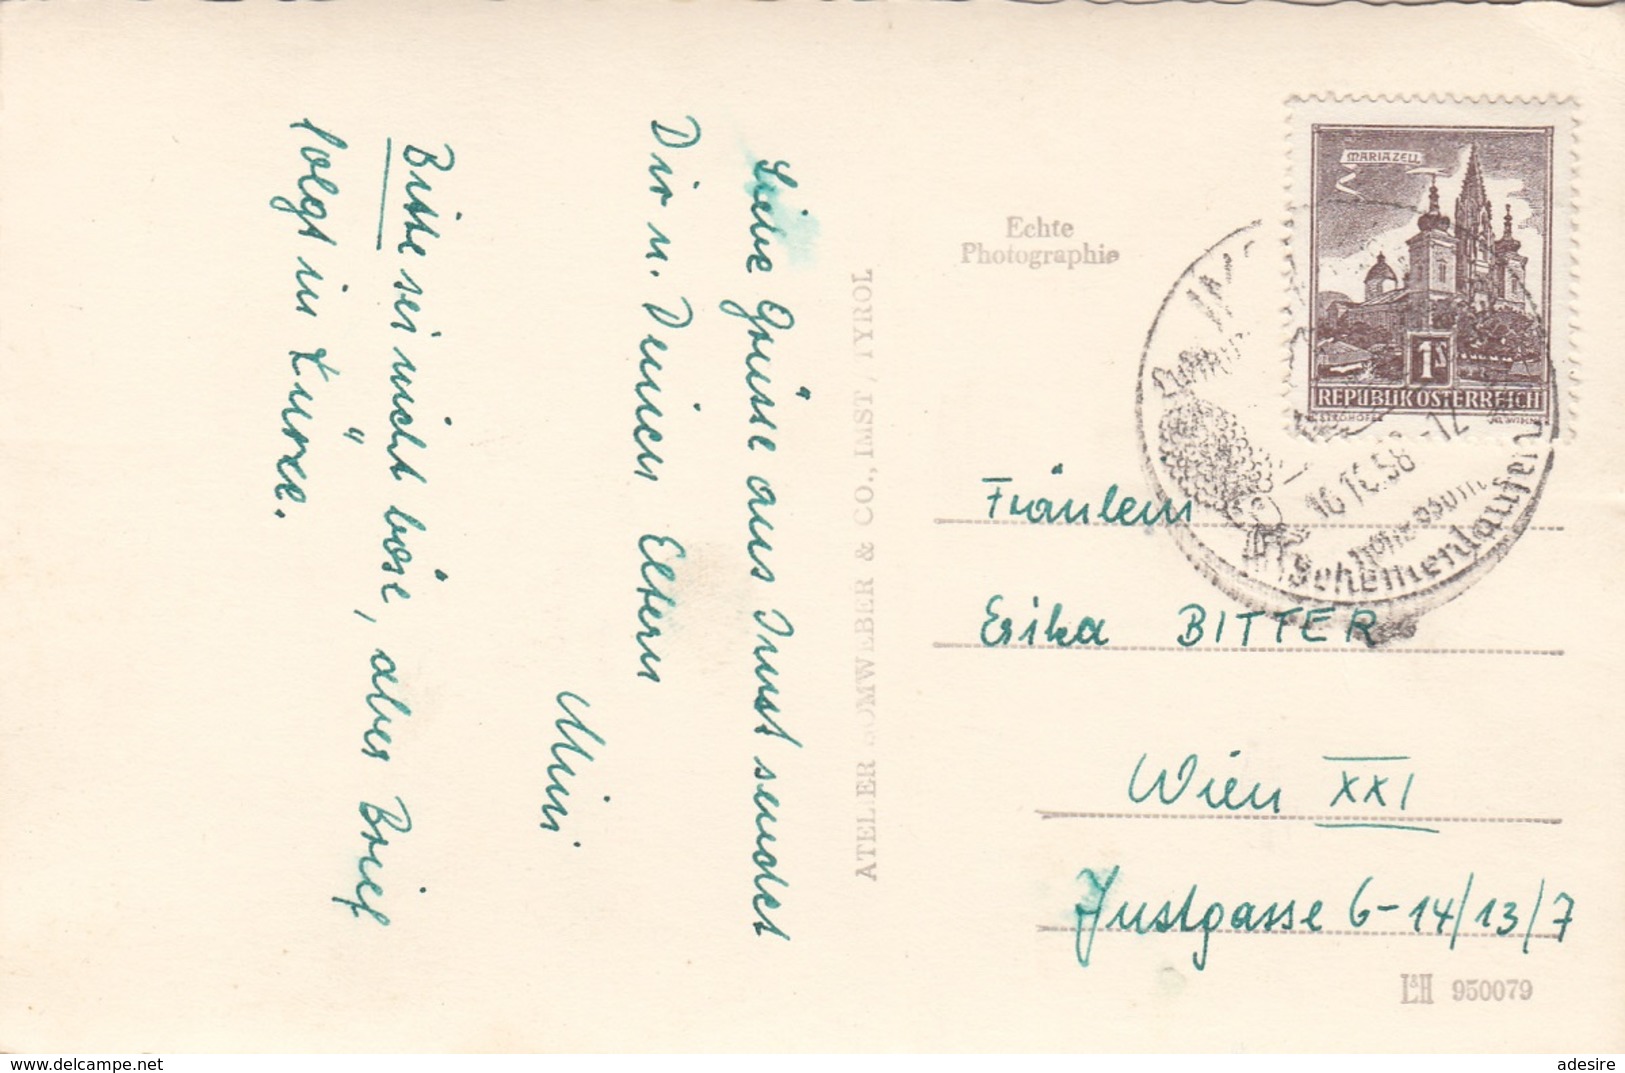 Liebe Grüsse aus Imst sendet
Dir u. Deinen Eltern
Mimi
Bitte sei nicht böse, aber Brief
folgt in Kürze.
ATELIER SOMWEBER & CO., IMST, TYROL
Echte
Photographie
MARIAZELL
1S
REPUBLIK ÖSTERREICH
IMST
16.10.58-12
Schemenlaufen
Fräulein
Erika BITTER
Wien XXI
Justgasse 6-14/13/7
L&H 950079
www.delcampe.net
adesire